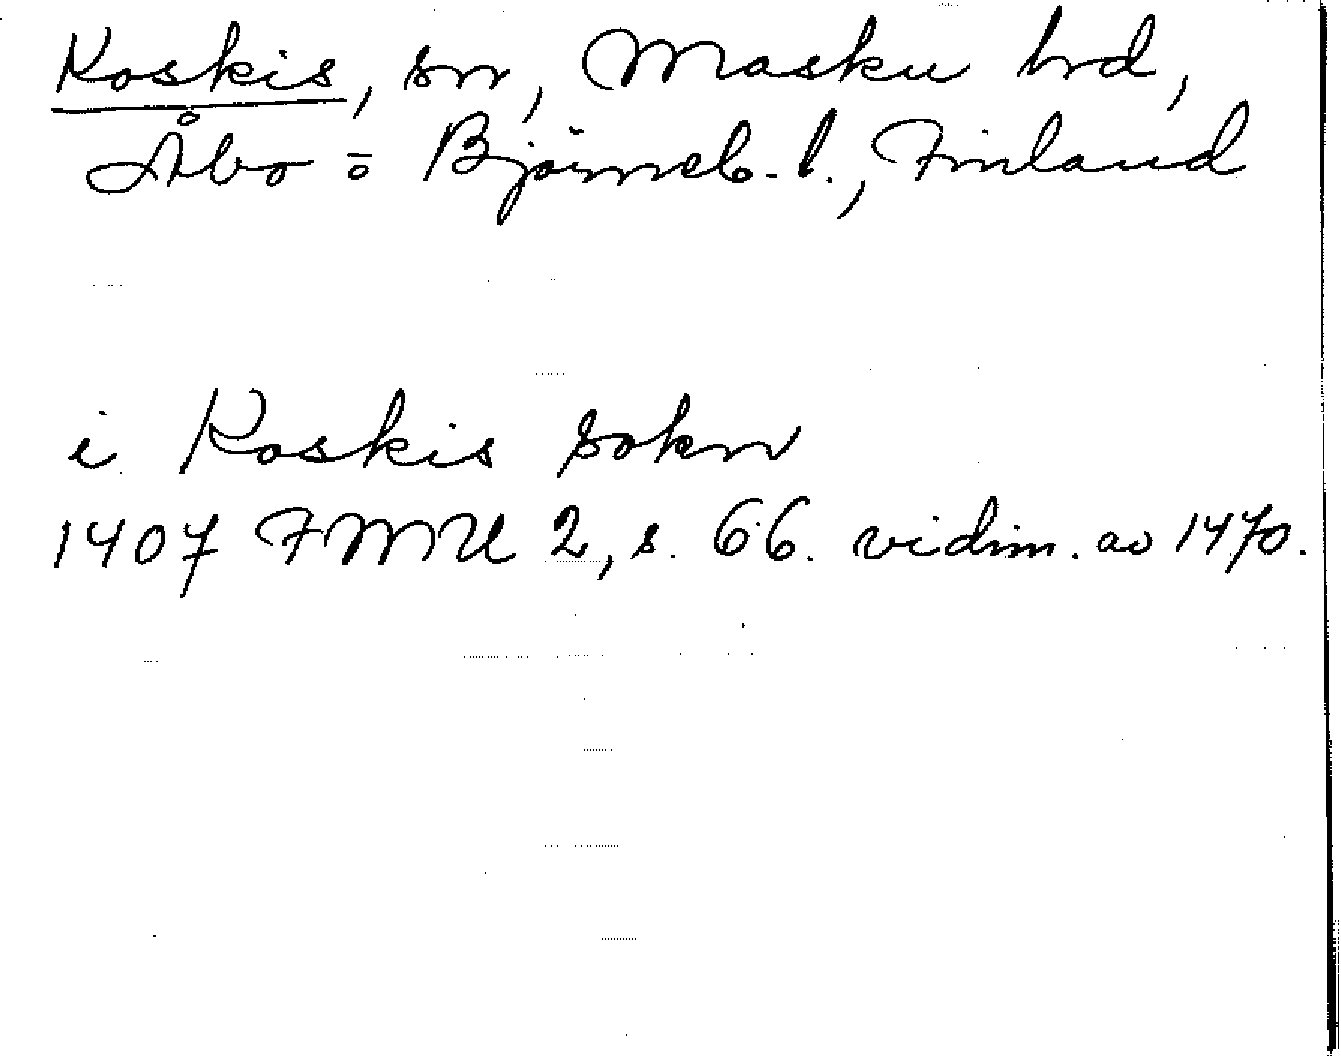 Koskis, sn, Masku hrd,
Åbo o Björneb. l., Finland
i Koskis sokn
1407 FMU 2, s. 66. vidim. av 1470.